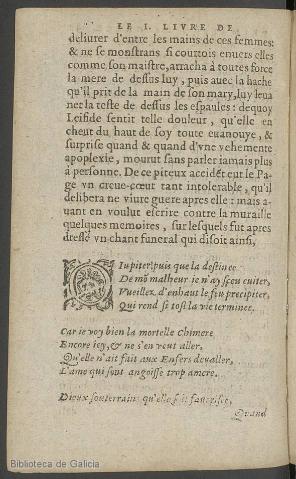 LE I. LIVRE DE
deliurer d'entre les mains de ces femmes:
& ne se monstrans si courtois enuers elles
comme son maistre, arracha à toutes force
la mere de dessus luy, puis auec la hache
qu'il prit de la main de son mary, luy leua
net la teste de dessus les espaules: dequoy
Leiside sentit telle douleur, qu'elle en
cheut du haut de soy toute euanouye, &
surprise quand & quand d'vne vehemente
apoplexie, mourut sans parler iamais plus
à personne. De ce piteux accidēt eut le Pa-
ge vn creue-cœur tant intolerable, qu'il
delibera ne viure guere apres elle: mais a-
uant en voulut escrire contre la muraille
quelques memoires, sur lesquels fut apres
dressé vn chant funeral qui disoit ainsi,
Iupiter puis que la destinee
De mō malheur ie n'ay sçeu euiter,
Vueillez d'enhaut le feu precipiter,
Qui rend si tost la vie terminee.
Car ie voy bien la mortelle Chimere
Encore icy, & ne s'en veut aller,
Qu'elle n'ait fait aux Enfers deualler,
L'ame qui sent angoisse trop amere.
Dieux souterrains qu'elle
Quand
Biblioteca de Galicia